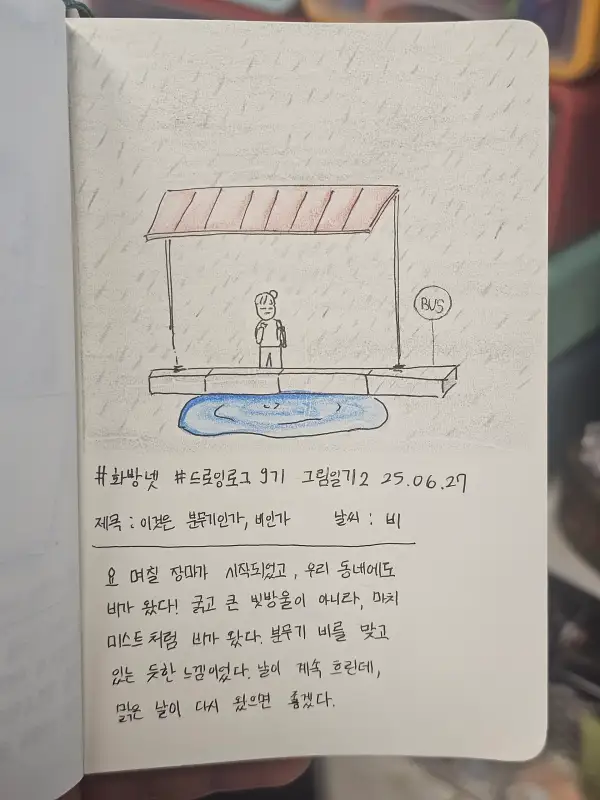 BUS
#화방넷 #드로잉로그 9기 그림일기2 25.06.27
제목 : 이것은 분무기인가, 비인가 날씨 : 비
요 며칠 장마가 시작되었고, 우리 동네에도
비가 왔다! 굵고 큰 빗방울이 아니라, 마치
미스트처럼 비가 왔다. 분무기 비를 맞고
있는 듯한 느낌이었다. 날이 계속 흐린데,
맑은 날이 다시 왔으면 좋겠다.